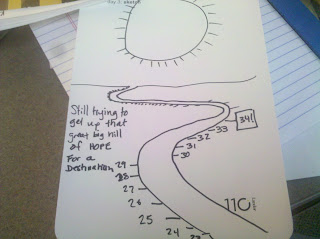 Day 1: sketch
Still trying to
get up that
great big hill
of HOPE
For a
Destination
34!
33
32
31
30
29
28
27
26
25
24
23
110